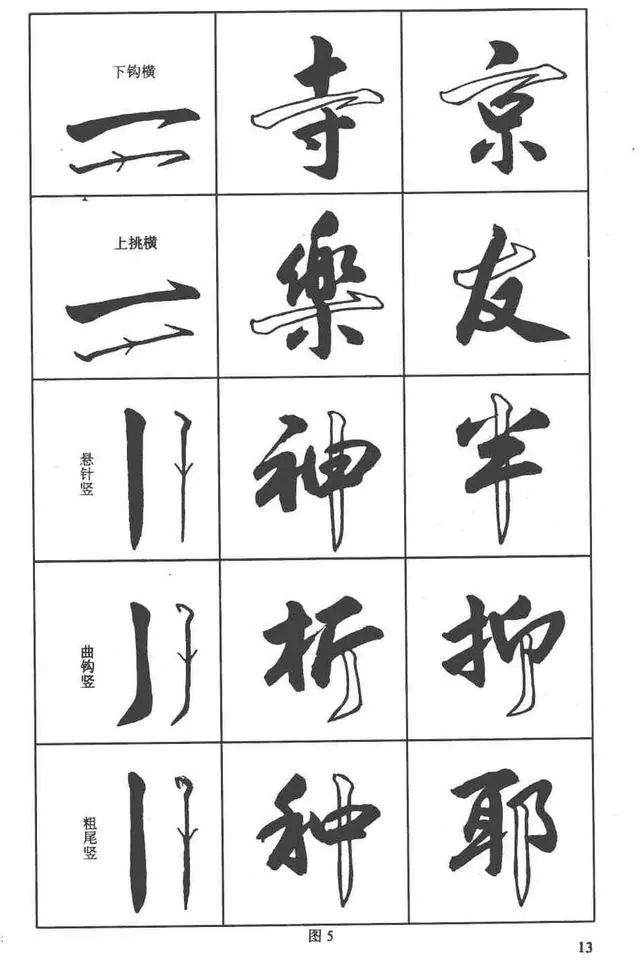 下钩横
寺
京
上挑横
樂
友
悬针竖
神
半
曲钩竖
析
抑
粗尾竖
种
耶
图5
13